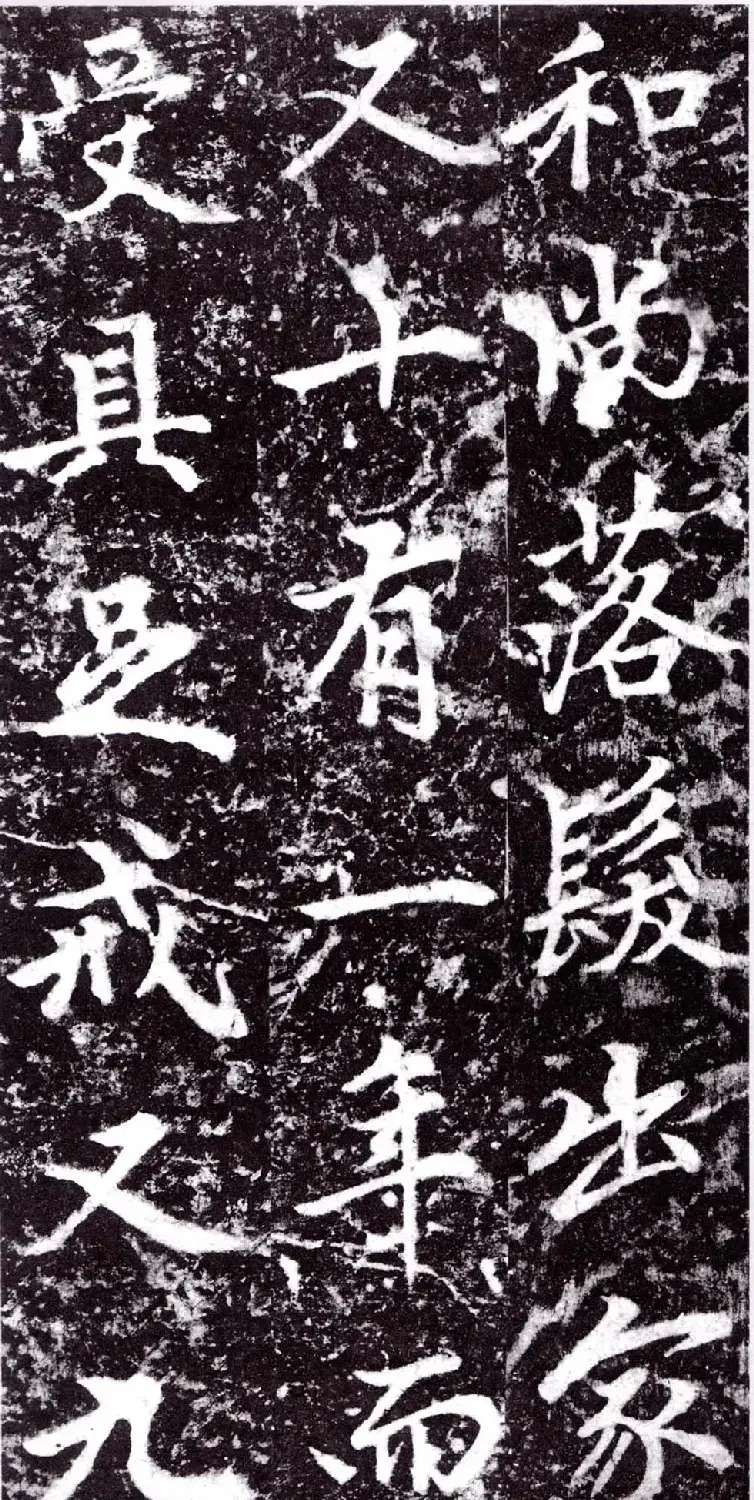 和尚落髮出家
又十有一年而
受具足戒又九